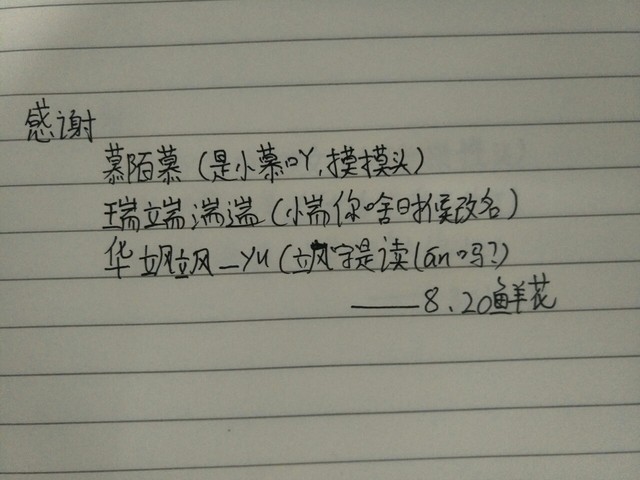 感谢
慕陌慕(是小慕吖,摸摸头)
瑞端湍遄(小耑你啥时候改名)
华飒飒_Yu(飒字是读(ān吗?)
——8.20鲜花